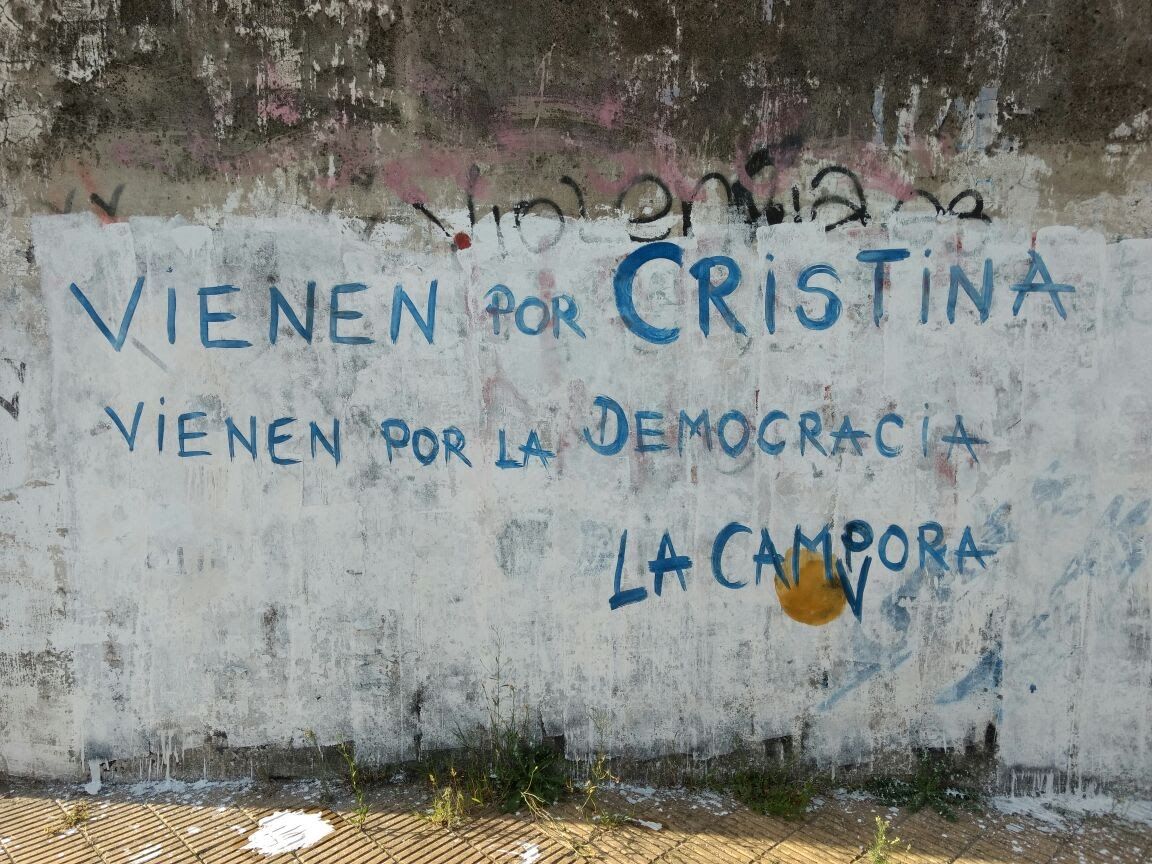 VIENEN POR CRISTINA
VIENEN POR LA DEMOCRACIA
LA CAMPORA
V